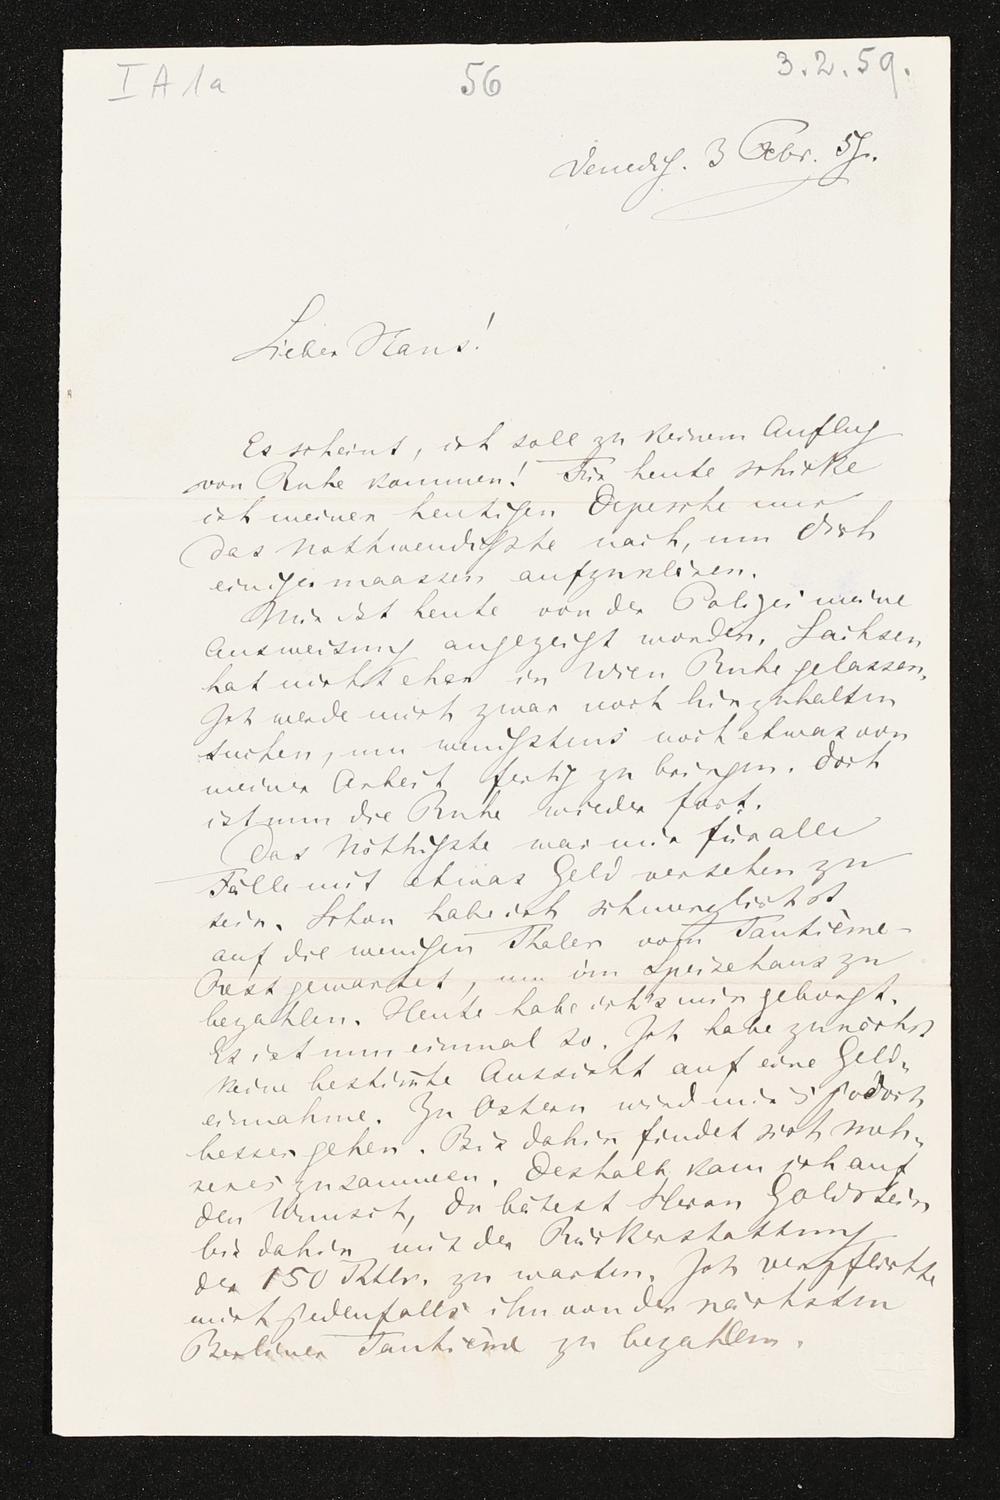 I A 1a 56 3.2.59.
Venedig. 3 Febr. 59.
Lieber Hans!
Es scheint, ich soll zu keinem Anflug
von Ruhe kommen! Für heute schicke
ich meiner heutigen Depesche nur
das Nothwendigste nach, um Dich
einigermaassen aufzuklären.
Mir ist heute von der Polizei meine
Ausweisung angezeigt worden. Sachsen
hat nicht eher in Wien Ruhe gelassen.
Ich werde mich zwar noch hinzuhalten
suchen, um wenigstens noch etwas von
meiner Arbeit fertig zu bringen. Doch
ist nun die Ruhe wieder fort.
Das Nöthigste war mir für alle
Fälle mit etwas Geld versehen zu
sein. Schon habe ich schmerzlichst
auf die wenigen Thaler vom Tantième-
Rest gewartet, um im Speisehaus zu
bezahlen. Heute habe ich's mir geborgt.
Es ist nun einmal so. Ich habe zunächst
keine bestimmte Aussicht auf eine Geld-
einnahme. Zu Ostern wird mir's jedoch
besser gehen. Bis dahin findet sich meh-
reres zusammen. Deshalb kam ich auf
den Wunsch, Du bätest Herrn Goldstein
bis dahin mit der Rückerstattung
der 150 Thlr. zu warten. Ich verpflichte
mich jedenfalls ihn von der nächsten
Berliner Tantième zu bezahlen.